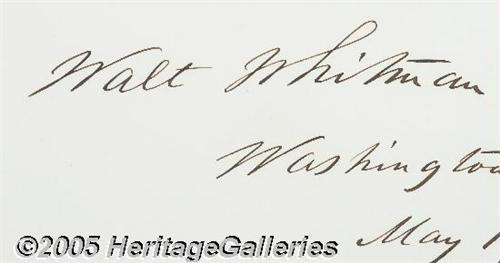 Walt Whitman
Washington
May 1
©2005 HeritageGalleries